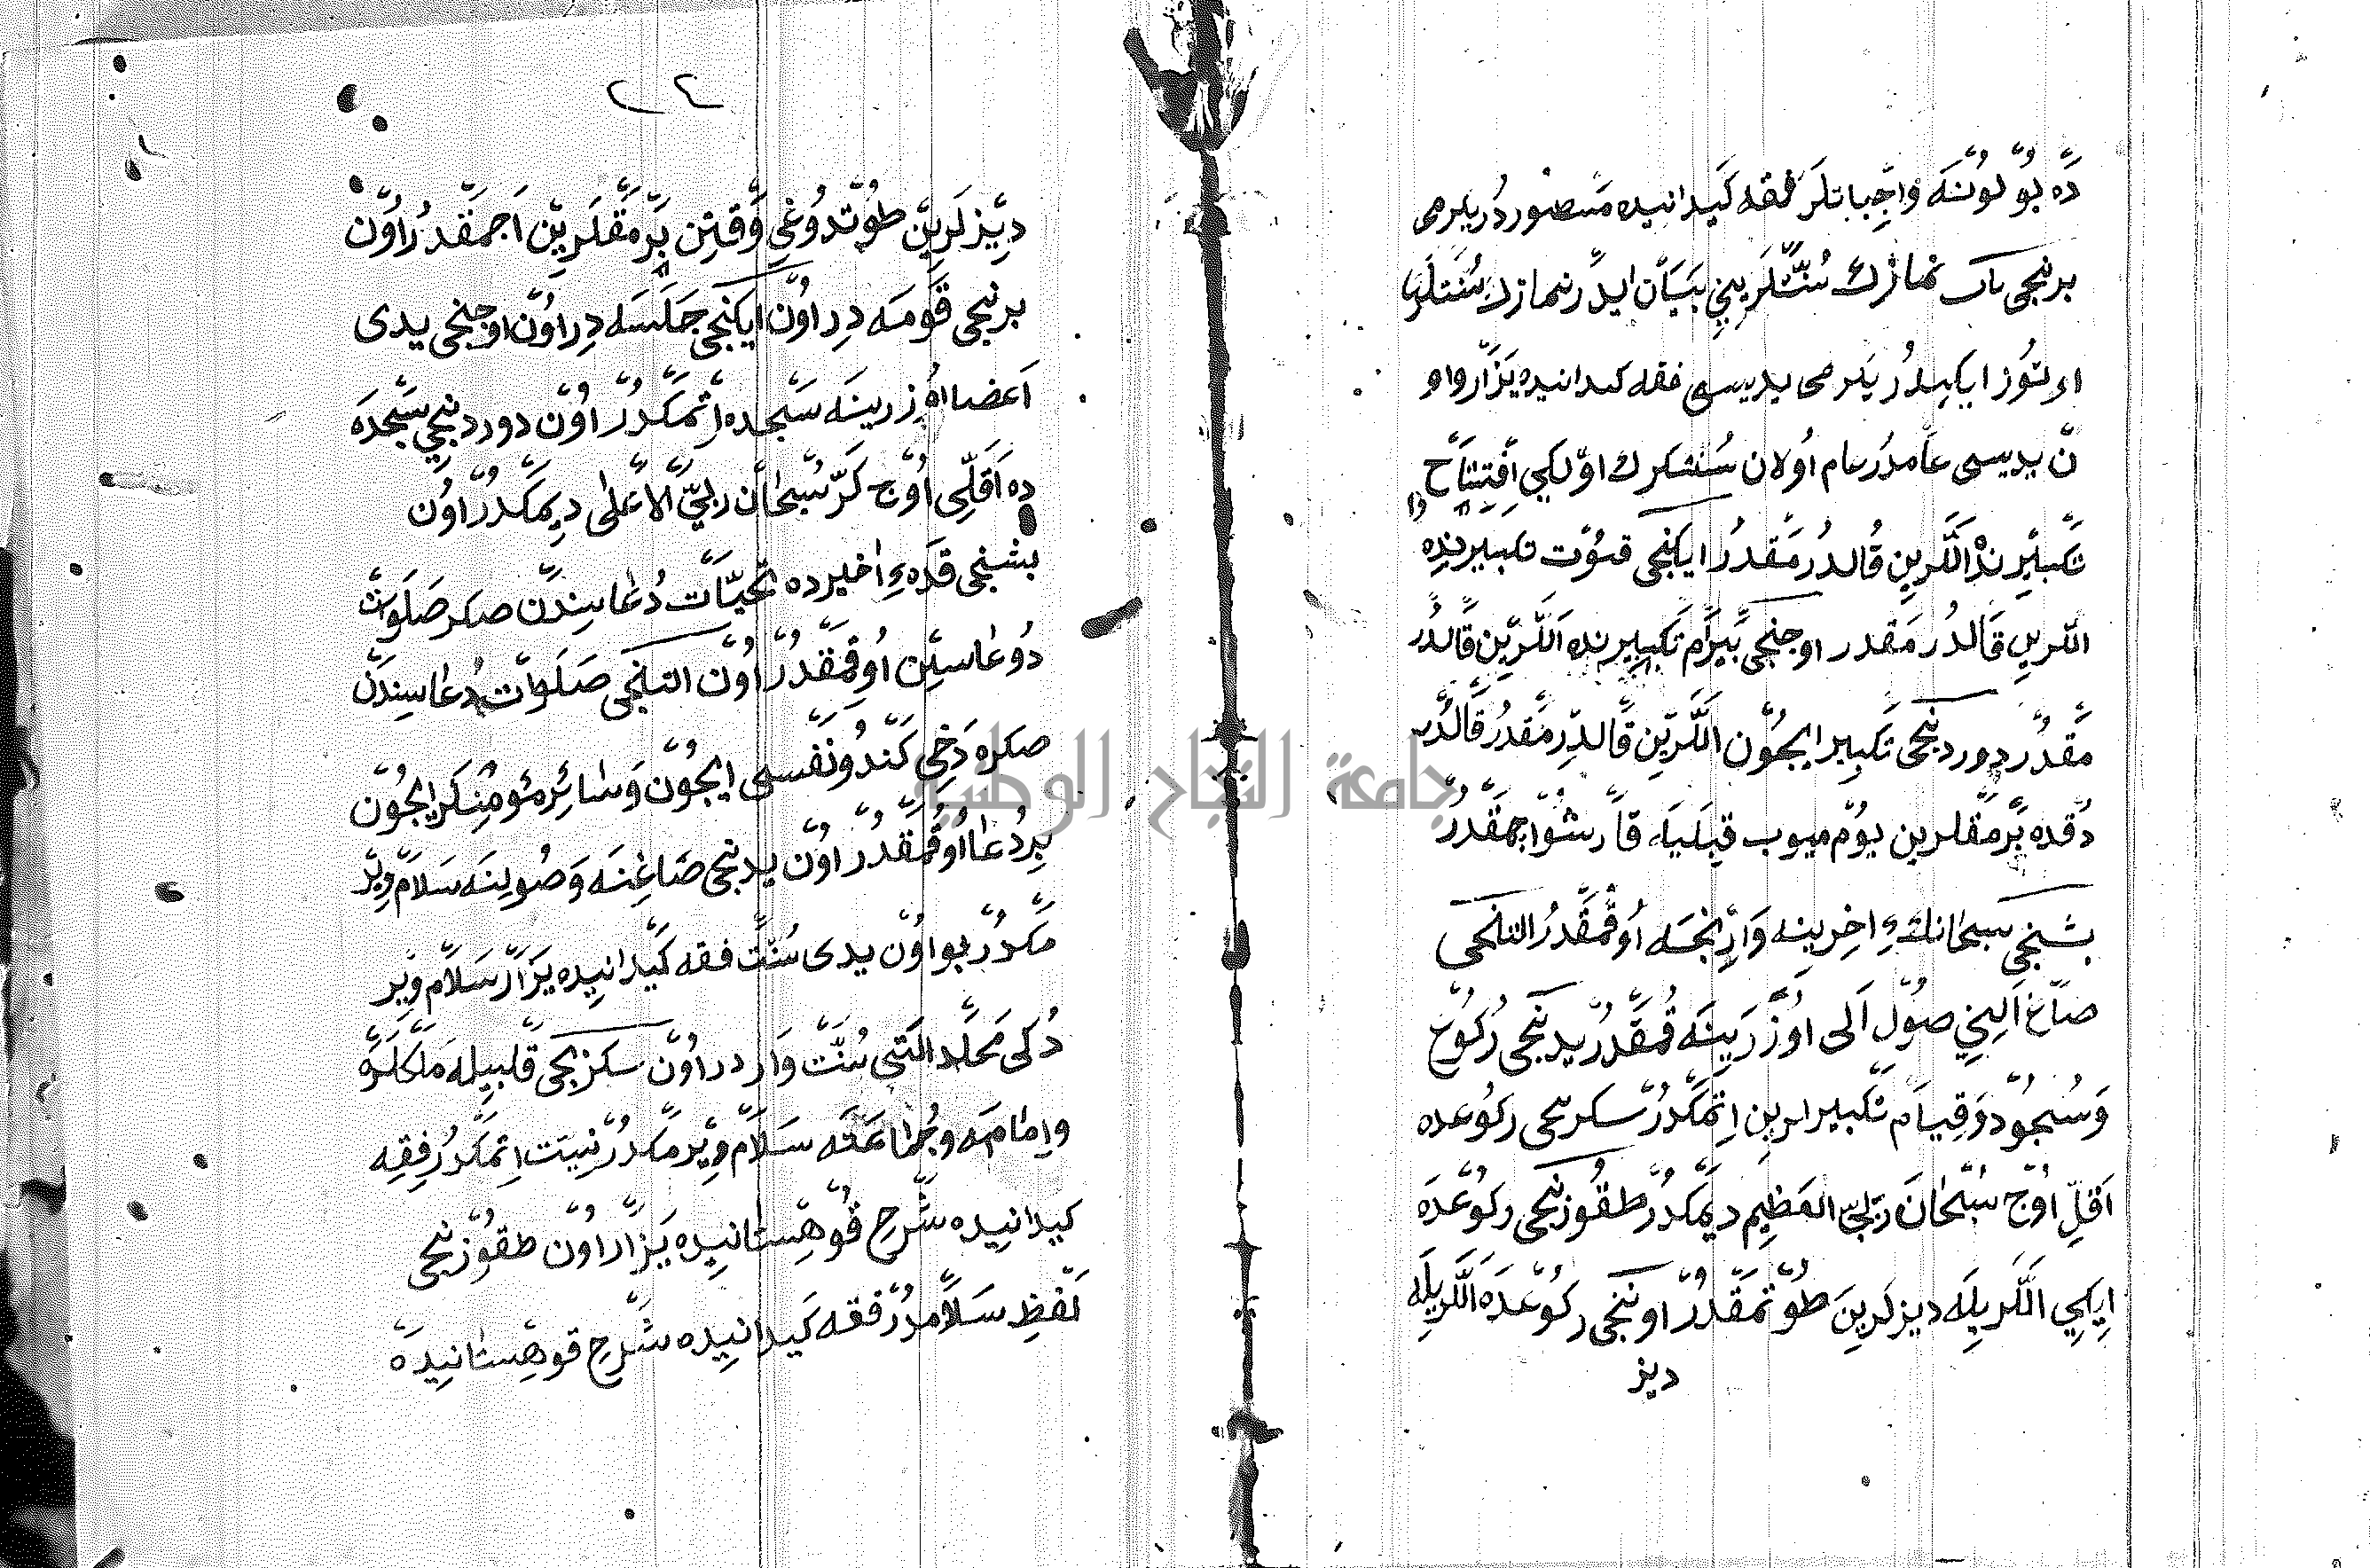 ده بولوننه واجباتلر فقه كيدانيده مسطوردر يكرمى
برنجى باب نمازك سنتلريني بيان ايدر نمازك سنتلرى
اوتوز ايكيدر يكرمى يديسى فقه كيدانيده يزار واو
ن يديسى عامدر عام اولان سنتكرك اوّلكي افتتاح
تكبيرنده اللرين قالدرمقدر ايكنجى قنوت تكبيرنده
اللرين قالدرمقدر اوجنجى بيرام تكبيرنده اللرين قالدر
مقدر دوردنجى تكبير ايجون اللرين قالدرمقدر قالدر
دقده برمقلرين يوم ميوب قبليه قارشو اجمقدر
بشنجى سبحانك ءاخرينه وارنجه اوقمقدر التنجى
صاغ الينى صول الى اوزرينه قومقدر يدنجى ركوع
وسجود وقيام تكبيرلرين اتمكدر سكزنجى ركوعده
اقلّ اوج سبحان ربي العظيم ديمكدر طقوزنجى ركوعده
ايكي اللريله ديزلرين طوتمقدر اوننجى ركوعده اللريله
ديز
٢٤
ديزلرين طوتدوغى وقتن برمقلرين اجمقدر اون
برنجى قومه در اون ايكنجى جلسه در اون اوجنجى يدى
اعضا اوزرينه سجده اتمكدر اون دوردنجى سجده
ده اقلّى اوج كرّ سبحان ربيّ الاعلى ديمكدر اون
بشنجى قده ءاخيرده تحيّات دعاسيندن صكر صلوات
دوعاسين اوقمقدر اون التنجى صلوات دعاسيندن
صكره دخى كندو نفسى ايجون وسائر مؤمنكر ايجون
بر دعا اوقمقدر اون يدنجى صاغنه وصولنه سلام وير
مكدر بو اون يدى سنت فقه كيدانيده يزار سلام وير
دكى محلد التى سنت وار در اون سكزنجى قلبيله ملكلره
وامامه وجماعته سلام ويرمكدر نيت اتمكدر فقه
كيدانيده شرح قوهستانيده يزار اون طقوزنجى
لفظ سلامدر فقه كيدانيده شرح قوهستانيده